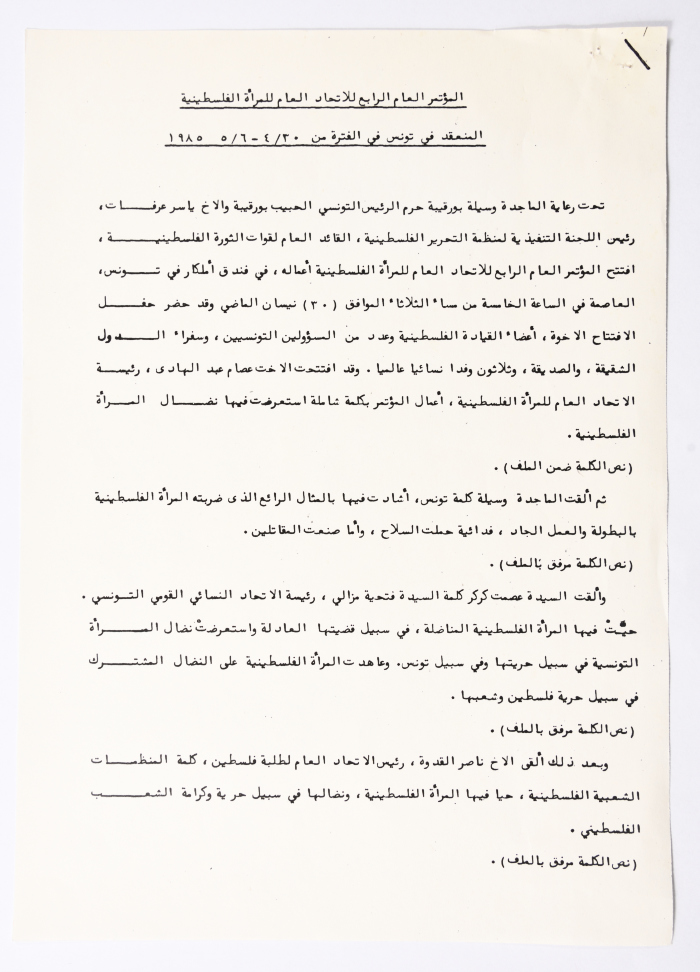 المؤتمر العام الرابع للاتحاد العام للمرأة الفلسطينية
المنعقد في تونس في الفترة من ٤/٣٠ – ٥/٦ ١٩٨٥
تحت رعاية الماجدة وسيلة بورقيبة حرم الرئيس التونسي الحبيب بورقيبة والاخ ياسر عرفــات،
رئيس اللجنة التنفيذية لمنظمة التحرير الفلسطينية، القائد العام لقوات الثورة الفلسطينيـــة،
افتتح المؤتمر العام الرابع للاتحاد العام للمرأة الفلسطينية أعماله، في فندق أملكار في تــونس،
العاصمة في الساعة الخامسة من مساء الثلاثاء الموافق (٣٠) نيسان الماضي وقد حضر حفــل
الافتتاح الاخوة، أعضاء القيادة الفلسطينية وعدد من المسؤولين التونسيين، وسفراء الــدول
الشقيقة، والصديقة، وثلاثون وفدا نسائيا عالميا. وقد افتتحت الاخت عصام عبد الهادى، رئيســة
الاتحاد العام للمرأة الفلسطينية، أعمال المؤتمر بكلمة شاملة استعرضت فيها نضــال المــرأة
الفلسطينية.
(نص الكلمة ضمن الملف).
ثم ألقت الماجدة وسيلة كلمة تونس، أشادت فيها بالمثال الرائع الذى ضربته المرأة الفلسطينية
بالبطولة والعمل الجاد، فدائية حملت السلاح، وأما صنعت المقاتلين.
(نص الكلمة مرفق بالملف).
وألقت السيدة عصمت كركر كلمة السيدة فتحية مزالي، رئيسة الاتحاد النسائي القومي التــونسي.
حيّتْ فيها المرأة الفلسطينية المناضلة، في سبيل قضيتها العادلة واستعرضتْ نضال المــــرأة
التونسية في سبيل حريتها وفي سبيل تونس. وعاهدت المرأة الفلسطينية على النضال المشتــرك
في سبيل حرية فلسطين وشعبها.
(نص الكلمة مرفق بالملف).
وبعد ذلك ألقى الاخ ناصر القدوة، رئيس الاتحاد العام لطلبة فلسطين، كلمة المنظمــات
الشعبية الفلسطينية، حيا فيها المرأة الفلسطينية، ونضالها في سبيل حرية وكرامة الشعــــب
الفلسطيني.
(نص الكلمة مرفق بالملف).